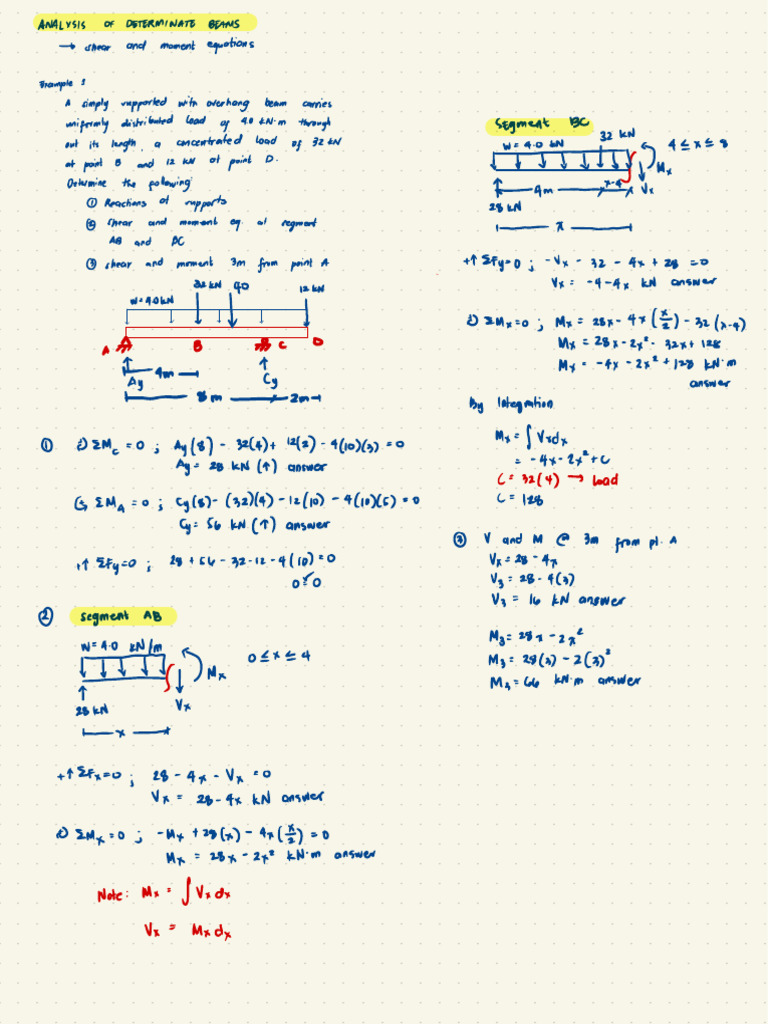 ANALYSIS OF DETERMINATE BEAMS
→ shear and moment equations
Example :
A simply supported with overhang beam carries
uniformly distributed load of 4.0 kN·m through
out its length, a concentrated load of 32 kN
at point B and 12 kN at point D.
Determine the following:
① Reactions of supports
② Shear and moment eq. at segment
AB and BC
③ shear and moment 3m from point A
32 kN 40 12 kN
W = 4.0 kN
A B C D
4m
Ay Cy
8m 2m
① ΣMc = 0 ; Ay(8) - 32(4) + 12(2) - 4(10)(3) = 0
Ay = 28 kN (↑) answer
ΣMA = 0 ; Cy(8) - (32)(4) - 12(10) - 4(10)(5) = 0
Cy = 56 kN (↑) answer
+↑ ΣFy = 0 ; 28 + 56 - 32 - 12 - 4(10) = 0
0 = 0
② segment AB
W = 4.0 kN/m
0 ≤ x ≤ 4
Mx
Vx
28 kN
x
+↑ ΣFx = 0 ; 28 - 4x - Vx = 0
Vx = 28 - 4x kN answer
ΣMx = 0 ; -Mx + 28(x) - 4x(x/2) = 0
Mx = 28x - 2x² kN·m answer
Note: Mx = ∫ Vx dx
Vx = Mx dx
Segment BC
32 kN
W = 4.0 kN 4 ≤ x ≤ 8
Mx
4m x-4 Vx
28 kN
x
+↑ ΣFy = 0 ; -Vx - 32 - 4x + 28 = 0
Vx = -4 - 4x kN answer
ΣMx = 0 ; Mx = 28x - 4x(x/2) - 32(x-4)
Mx = 28x - 2x² - 32x + 128
Mx = -4x - 2x² + 128 kN·m
answer
By Integration
Mx = ∫ Vx dx
= -4x - 2x² + C
C = 32(4) → load
C = 128
③ V and M @ 3m from pt. A
Vx = 28 - 4x
V3 = 28 - 4(3)
V3 = 16 kN answer
M3 = 28x - 2x²
M3 = 28(3) - 2(3)²
M3 = 66 kN·m answer